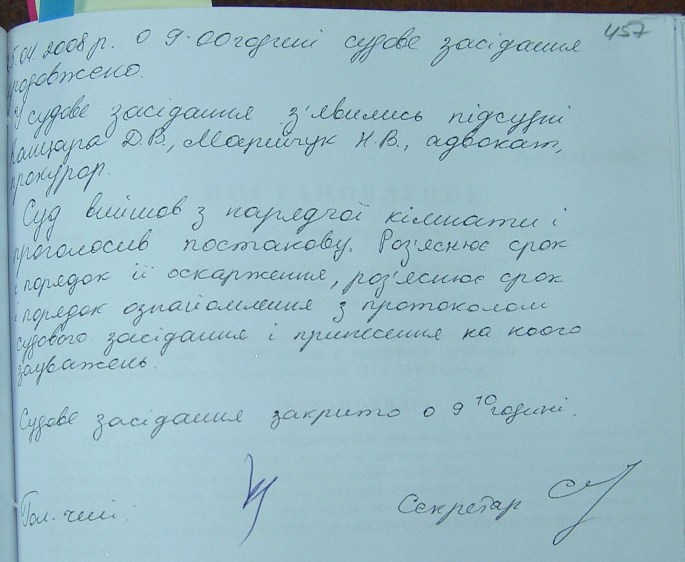 457
5.04.2008р. о 9.00годині судове засідання
продовжено.
У судове засідання з'явились підсудні
Кашкара Д.В., Марийчук Н.В., адвокат,
прокурор.
Суд вийшов з нарядчої кімнати і
проголосив постанову. Роз'яснює срок
і порядок її оскарження, роз'яснює срок
і порядок ознайомлення з протоколом
судового засідання і принесення на нього
зауважень.
Судове засідання закрито о 9 10 годині.
Гол.-чий: Секретар